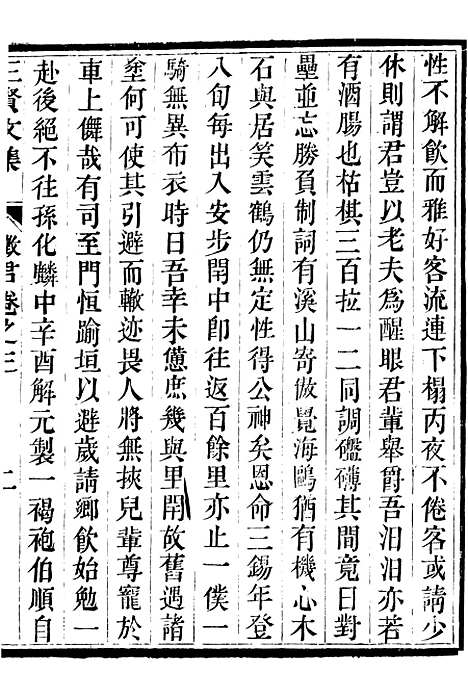 性不解飲而雅好客流連下榻丙夜不倦客或請少
休則謂君豈以老夫爲醒眼君輩舉爵吾汨汨亦若
有酒腸也枯棋三百拉一二同調礧磚其間竟日對
壘並忘勝負制詞有溪山寄傲覽海鷗猶有機心木
石與居笑雲鶴仍無定性得公神矣恩命三錫年登
八旬每出入安步閈中卽往返百餘里亦止一僕一
騎無異布衣時日吾幸未憊庶幾與里閈故舊遇諸
塗何可使其引避而轍迹畏人將無挾兒輩尊寵於
車上儛哉有司至門恒踰垣以避歲請鄉飲始勉一
赴後絕不往孫化麟中辛酉解元製一褐袍伯順自
三賢文集
徵君卷之三
二